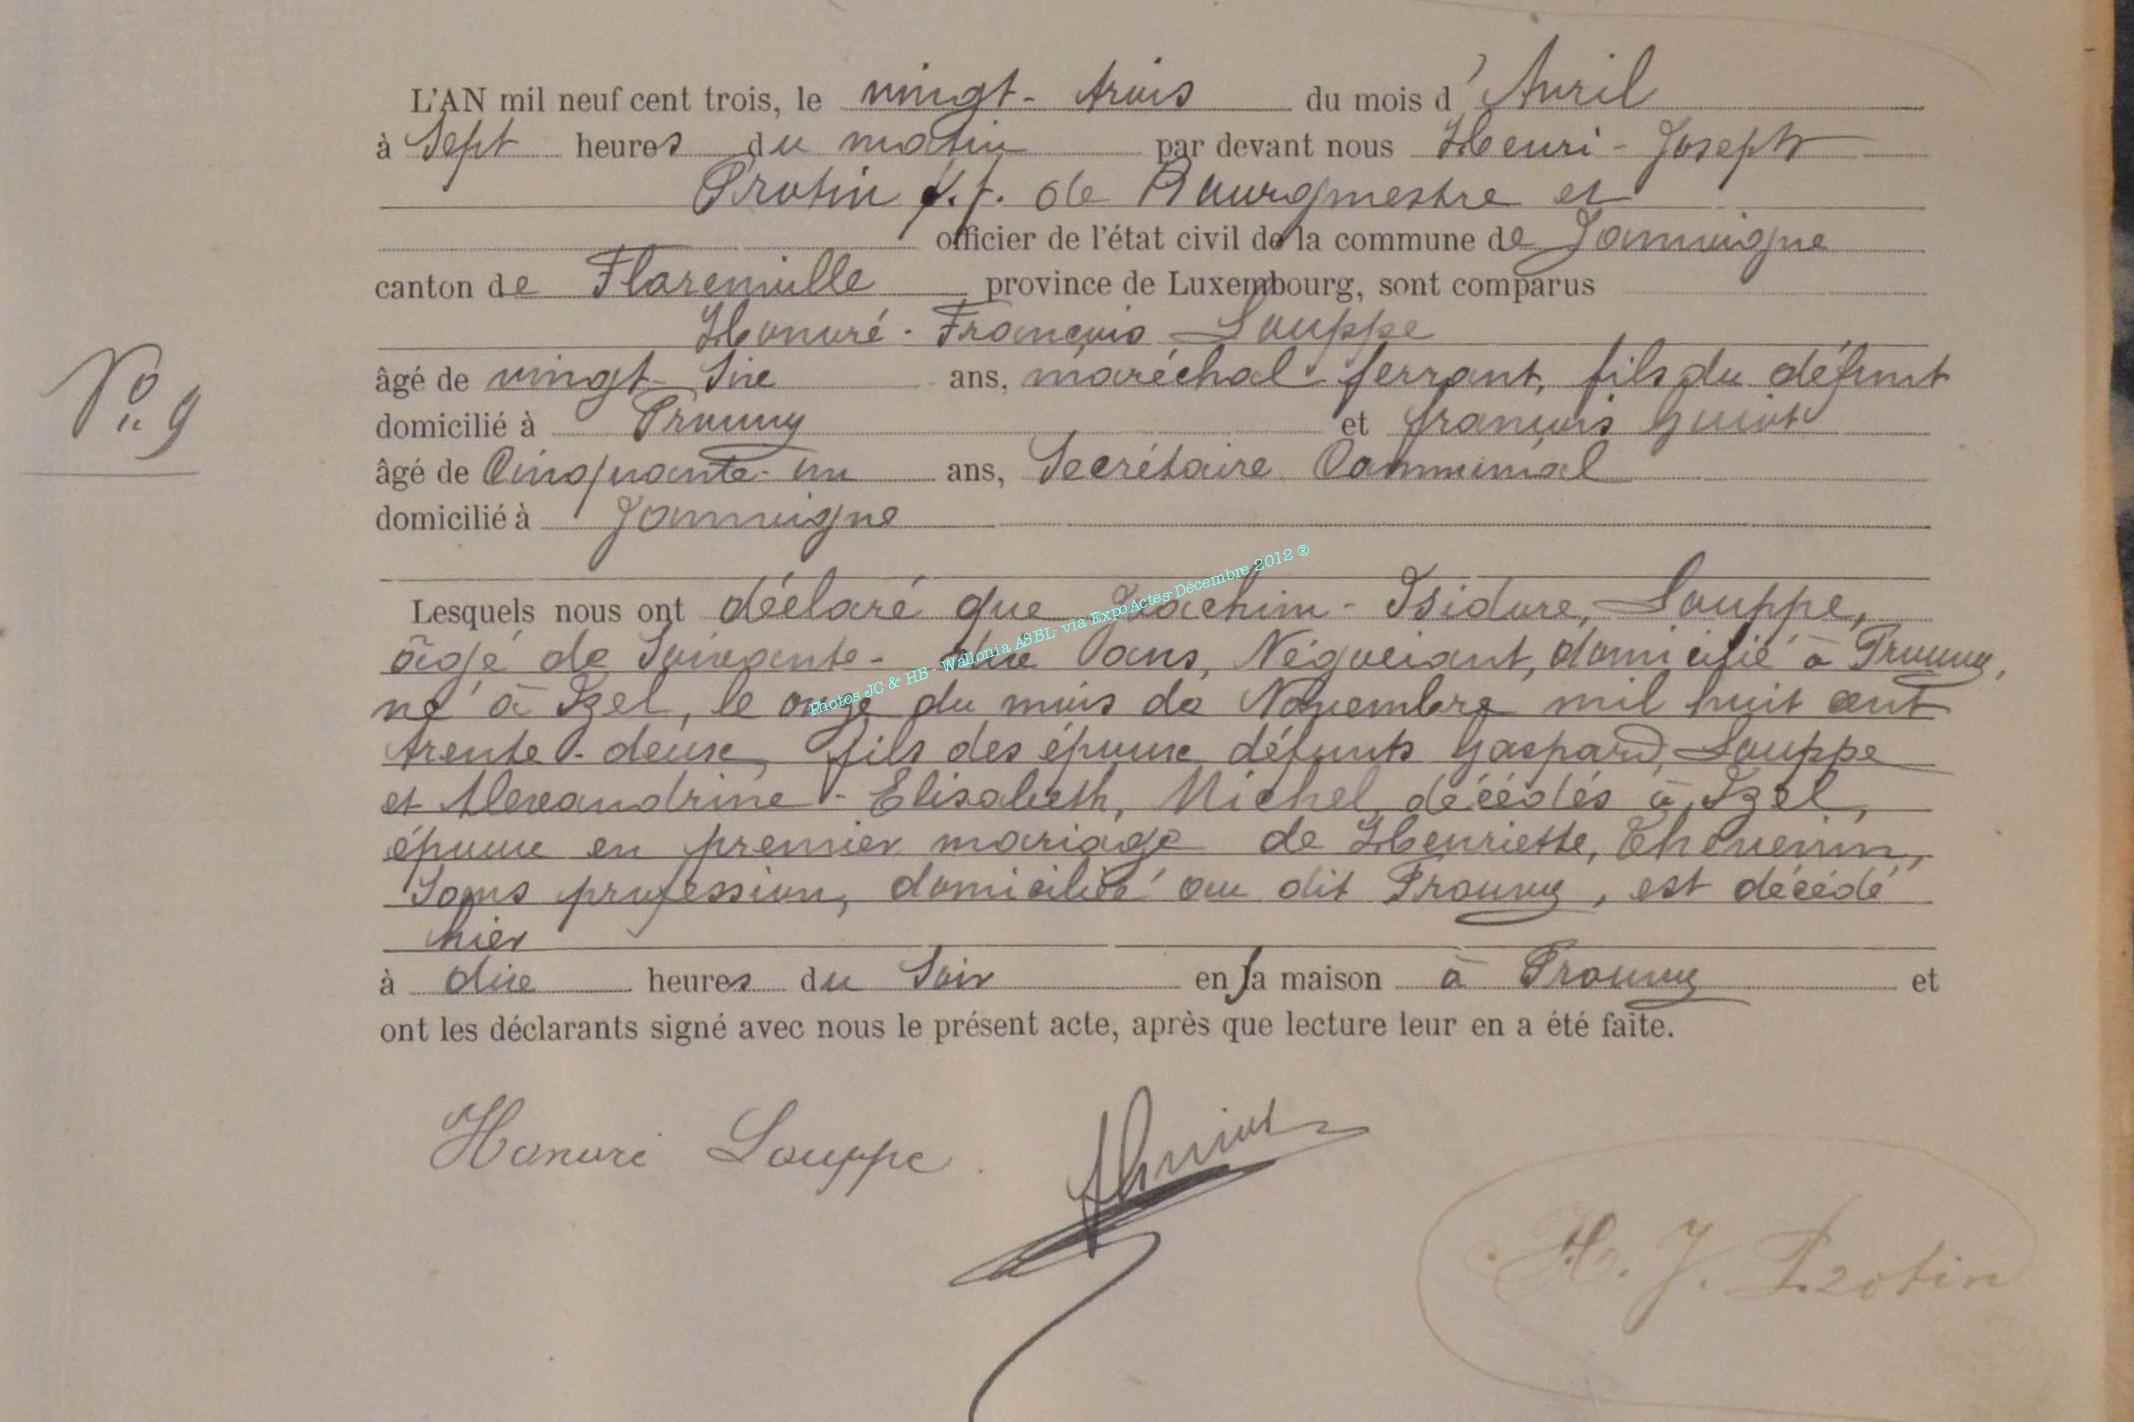 L'AN mil neuf cent trois, le vingt-trois du mois d'Avril
à Sept heures du matin par devant nous Henri-Joseph
Protin f.f. de Bourgmestre et
officier de l'état civil de la commune de Jamoigne
canton de Florenville province de Luxembourg, sont comparus
Honoré-François Louppe
âgé de vingt-six ans, maréchal-ferrant, fils du défunt
domicilié à Prouvy et françois Guiot
âgé de Cinquante-un ans, Secrétaire Communal
domicilié à Jamoigne
Lesquels nous ont déclaré que Joachim-Isidore, Louppe,
âgé de Soixante-dix ans, Négociant, domicilié à Prouvy,
né à Izel, le onze du mois de Novembre mil huit cent
trente-deux, fils des époux défunts Gaspard, Louppe
et Alexandrine-Elisabeth, Michel, décédés à Izel,
époux en premier mariage de Henriette, Thevenin,
Sans profession, domiciliée au dit Prouvy, est décédé
hier
à dix heures du Soir en sa maison à Prouvy et
ont les déclarants signé avec nous le présent acte, après que lecture leur en a été faite.
No 9
Photos JC & HB - Wallonia ASBL via ExpoActes Décembre 2012 ®
Honoré Louppe
fGuiot
H. J. Protin